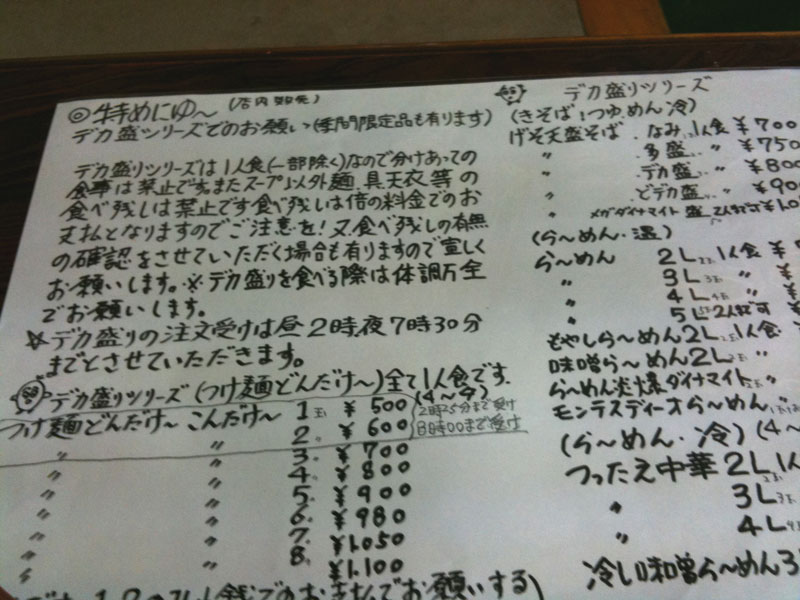 ◎特めにゅ〜 (店内販売)
デカ盛シリーズでのお願い(季間限定品も有ります)
デカ盛りシリーズは1人食(一部除く)なので分けあっての
食事は禁止ですまたスープ以外麺、具天衣、等の
食べ残しは禁止です食べ残しは倍の料金でのお
支払となりますのでご注意を!又食べ残しの有無
の確認をさせていただく場合も有りますので宜しく
お願いします。※デカ盛りを食べる際は体調万全
でお願いします。
☆デカ盛りの注文受けは昼2時、夜7時30分
までとさせていただきます。
デカ盛りシリーズ(つけ麺どんだけ〜)全て1人食です。
(4〜9)
つけ麺どんだけ〜こんだけ〜 1玉 ¥500 2時25分まで受け
〃 〃 2〃 ¥600 8時00まで受け
〃 〃 3〃 ¥700
〃 〃 4〃 ¥800
〃 〃 5〃 ¥900
〃 〃 6〃 ¥980
〃 〃 7〃 ¥1,050
〃 〃 8〃 ¥1,100
お支払でお願いする)
デカ盛りシリーズ
(きそば!つゆ、めん冷)
げそ天盛そば、なみ、1人食 ¥700
〃 多盛〃 ¥750
〃 デカ盛〃 ¥800
〃 どデカ盛〃 ¥90
〃 メガダイナマイト盛 2人才可 ¥1,0
(ら〜めん・温)
ら〜めん 2L 1人食 ¥
〃 3L 〃 ¥
〃 4L 〃
〃 5L 2人才可
もやしら〜めん2L 1人食
味噌ら〜めん2L 〃
ら〜めん炎爆ダイナマイト 〃
モンテスディオら〜めん
(ら〜めん・冷)(4〜
つったえ中華2L 1人
〃 3L
〃 4L
冷い味噌ら〜めん3